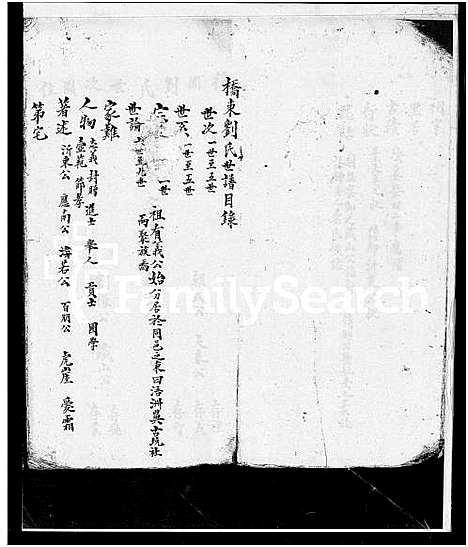 橋東劉氏世譜目錄
世次 一世至五世
世系 一世至五世
一世祖有義公始分居於同邑之東曰浯洲與古坑社
而聚族焉
世論 一世至九世
家難
人物 忠義 封贈 進士 舉人 貢士 國學
壺範 節孝
著述 沂東公 應南公 海若公 百朋公 虎崖 愛霜
第宅
FamilySearch